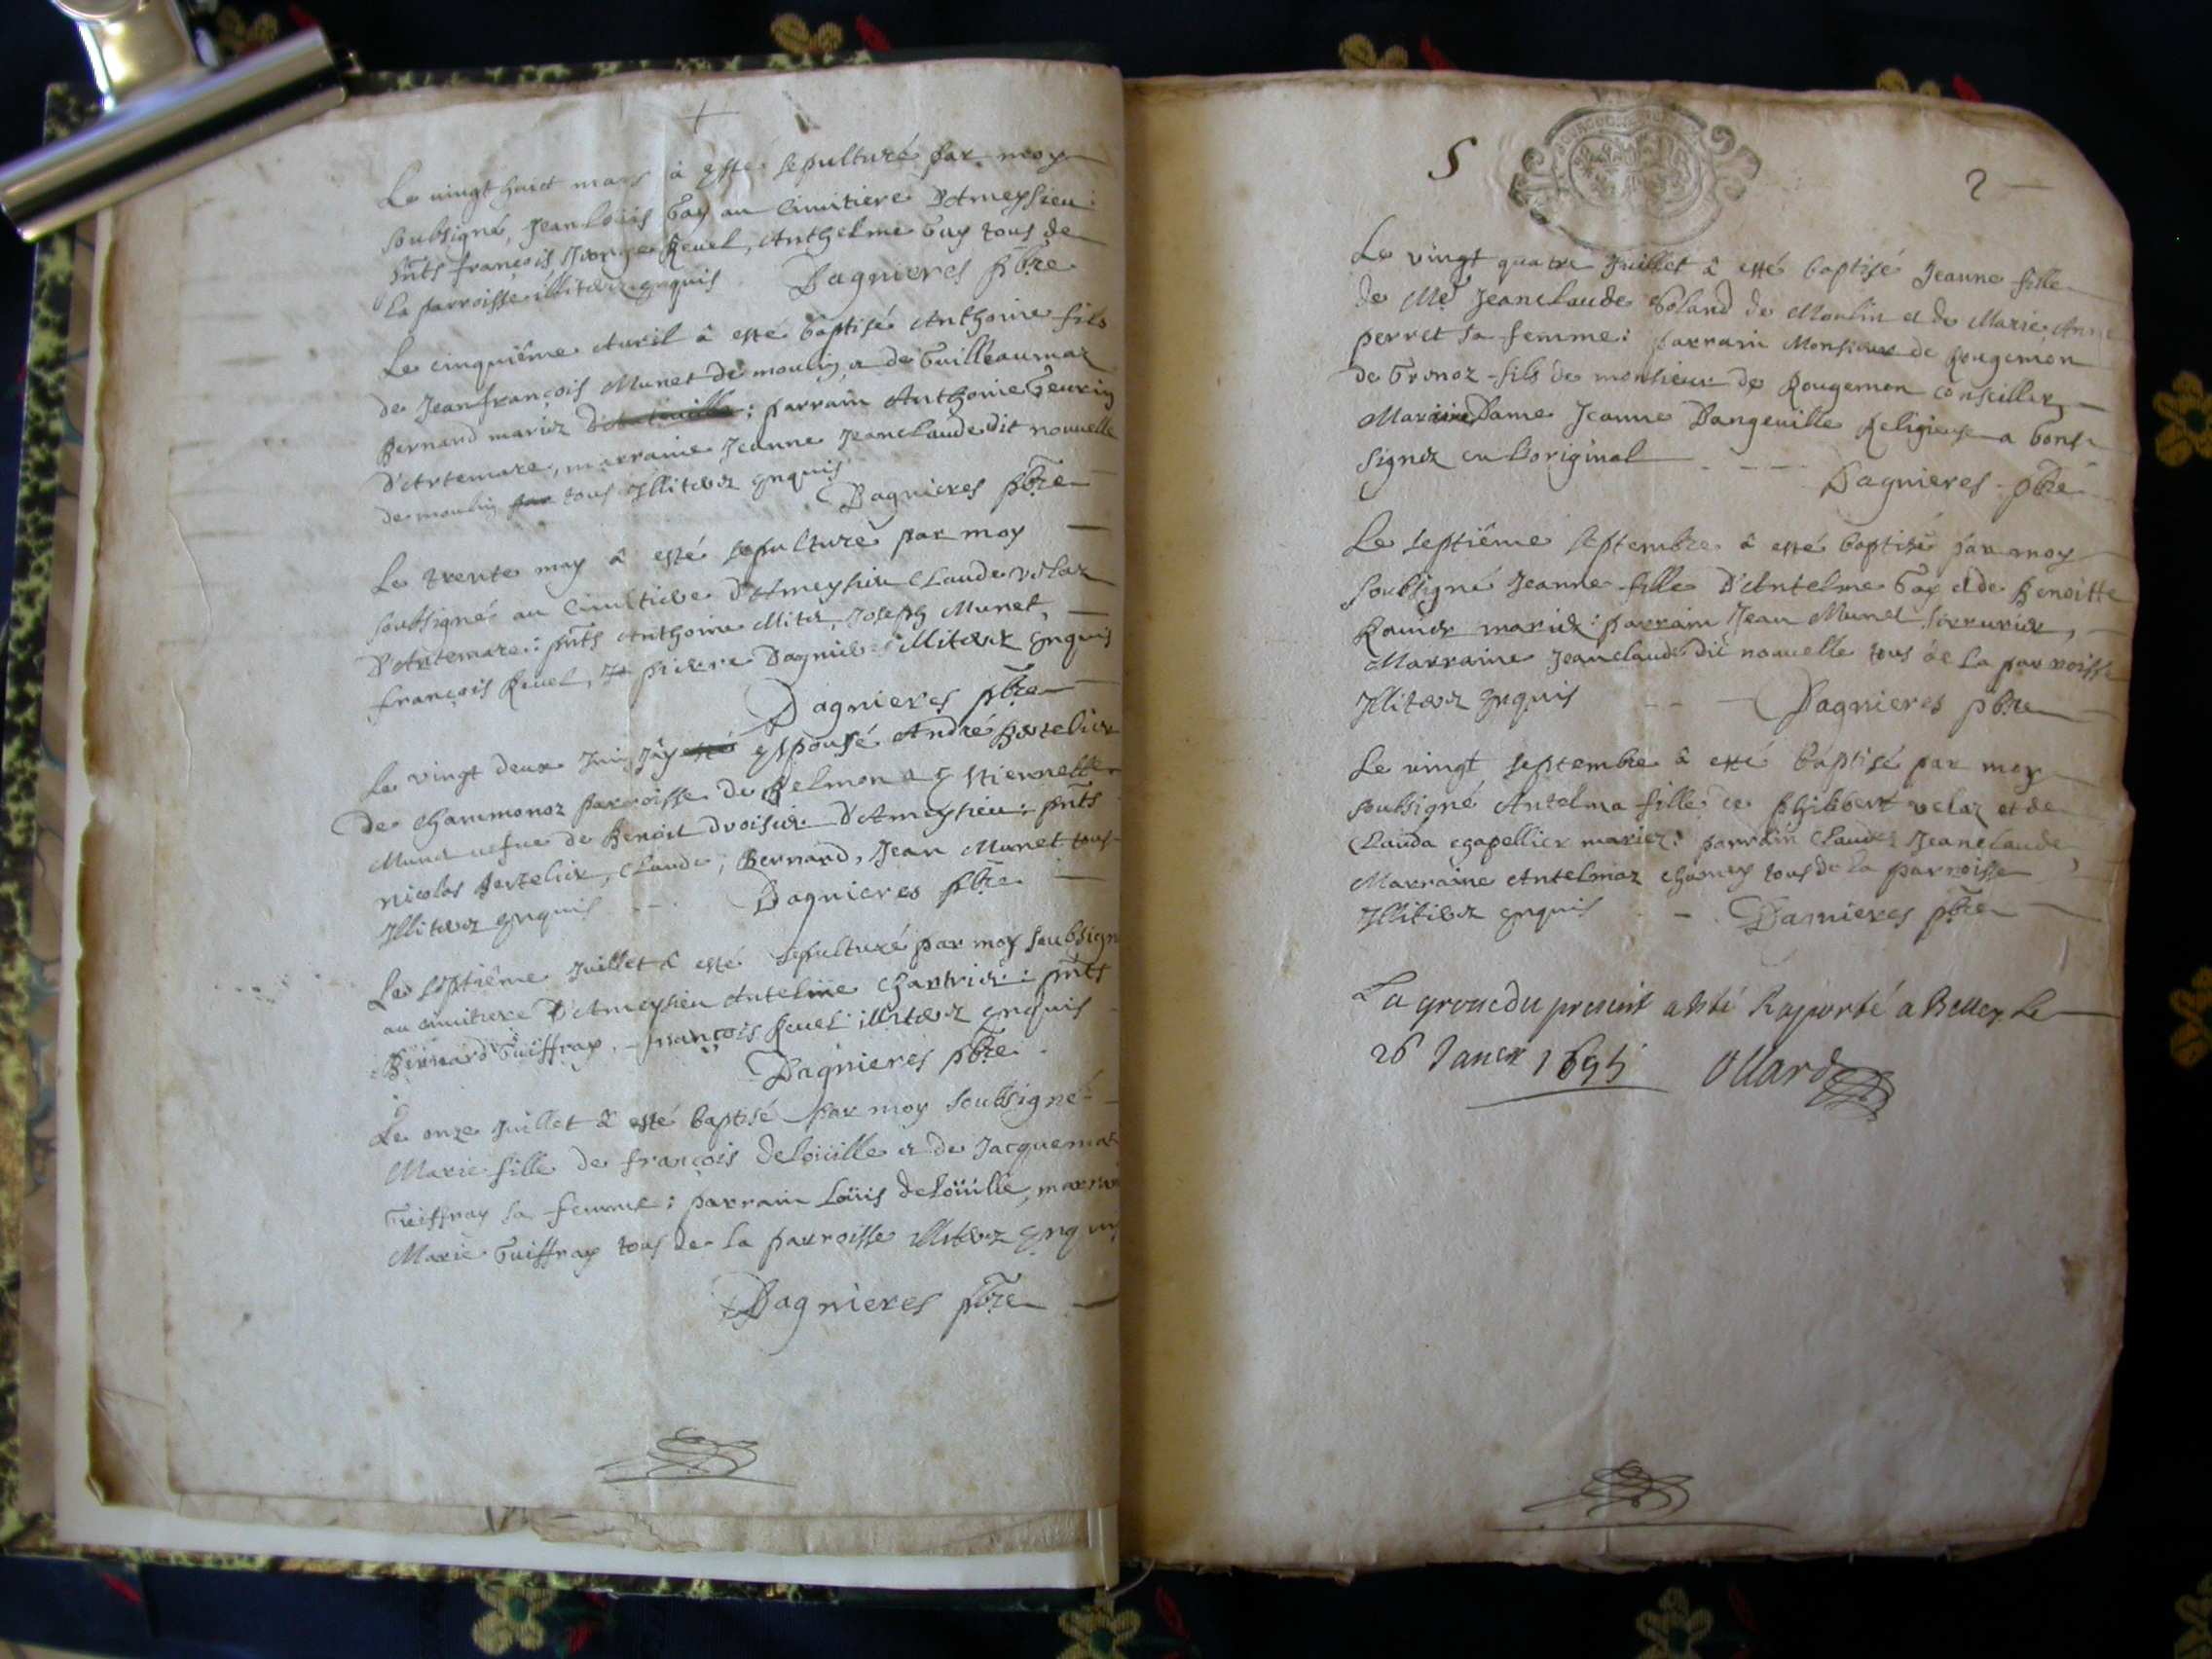 Le vingt huict mars â esté sepulturé par moy
soubsigné, Jean Loüis Gay au cimitiere D'Ameysieu:
pñts françois Revel, Anthelme Guy tous de
la parroisse illiterez enquis Dagnieres pbre
Le cinquiême Avril â esté baptisé Anthoine fils
de Jeanfrançois Munet de moulin et de Guilleaumaz
Bernard mariez : parrain Anthoine Geurin
D'Artemare, marraine Jeanne Jeanclaude dit nouvelle
de moulin tous Illiterez enquis Dagnieres pbre
Le trente may â esté sepulturé par moy
soubsigné au cimitiere D'Ameysieu Claude velaz
D'Artemare: pñts Anthoine Mitet, Joseph Munet,
françois Revel, pierre Dagnieres illiterez enquis
Dagnieres pbre
Le vingt deux Juin J'ay espousé André Bertelier
de Charmonoz parroisse de Belmon et Estiennette
Munet vefve de Benoit Droisier D'Ameysieu: pñts
nicolas Bertelier, Claude Bernard, Jean Munet tous
Illiterez enquis Dagnieres pbre
Le septiême Juillet â esté sepulturé par moy soubsigné
au cimitiere D'Ameysieu Antelme Chartrier: pñts
Bernard Guiffray, françois Revel illiterez enquis
Dagnieres pbre
Le onze Juillet â esté baptisé par moy soubsigné
Marie fille de françois deloüille et de Jacquemaz
Guiffray sa femme: parrain Loüis deloüille, marraine
Marie Guiffray tous de la parroisse illiterez enquis
Dagnieres pbre
S 2
Le vingt quatre Juillet â esté baptisé Jeanne fille
de Me Jeanclaude Boland de Moulin et de Marie Anne
perret sa femme: parrain Monsieur de Rougemon
de Gronoz fils de monsieur de Rougemon conseiller
Marraine Dame Jeanne Dangeuille Religieuse a bons
signez en l'original
Dagnieres pbre
Le septiême septembre â esté baptisé par moy
soubsigné Jeanne fille D'Antelme Gay et de Benoitte
mariez: parrain Jean Munet serrurier,
Marraine Jeanclaude dit nouvelle tous de la parroisse
Illiterez enquis Dagnieres pbre
Le vingt septembre â esté baptisé par moy
soubsigné Antelma fille de philibert velaz et de
Clauda chapellier mariez: parrain Claude Jeanclaude
Marraine Antelmaz tous de la parroisse
Illiterez enquis Dagnieres pbre
La grosse du present a esté Raporté a Belley le
26 Janer 1695 Ollard